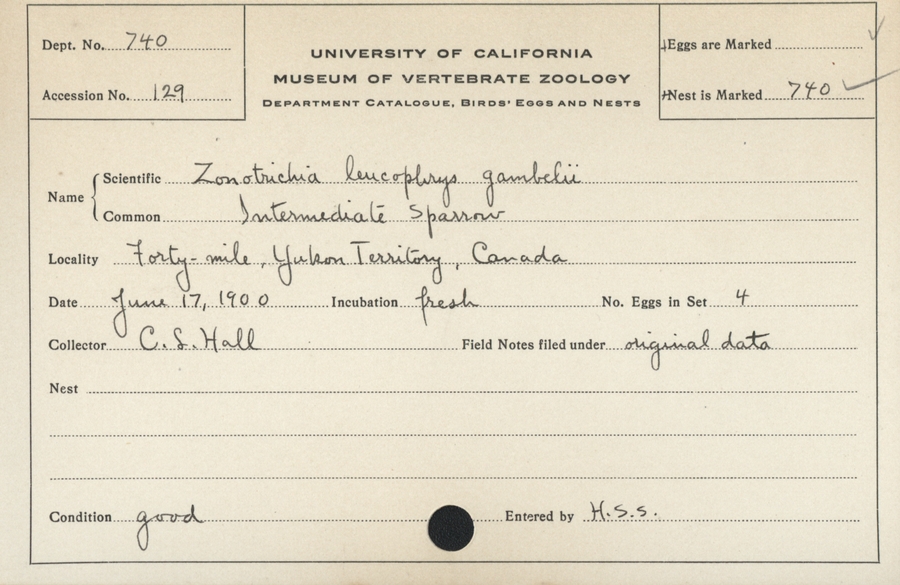 Dept. No. 740
Accession No. 129
UNIVERSITY OF CALIFORNIA
MUSEUM OF VERTEBRATE ZOOLOGY
DEPARTMENT CATALOGUE, BIRDS' EGGS AND NESTS
Eggs are Marked
Nest is Marked 740
Name
Scientific Zonotrichia leucophrys gambelii
Common Intermediate Sparrow
Locality Forty-mile, Yukon Territory, Canada
Date June 17, 1900 Incubation fresh No. Eggs in Set 4
Collector C. L. Hall Field Notes filed under original data
Nest
Condition good Entered by H.S.S.